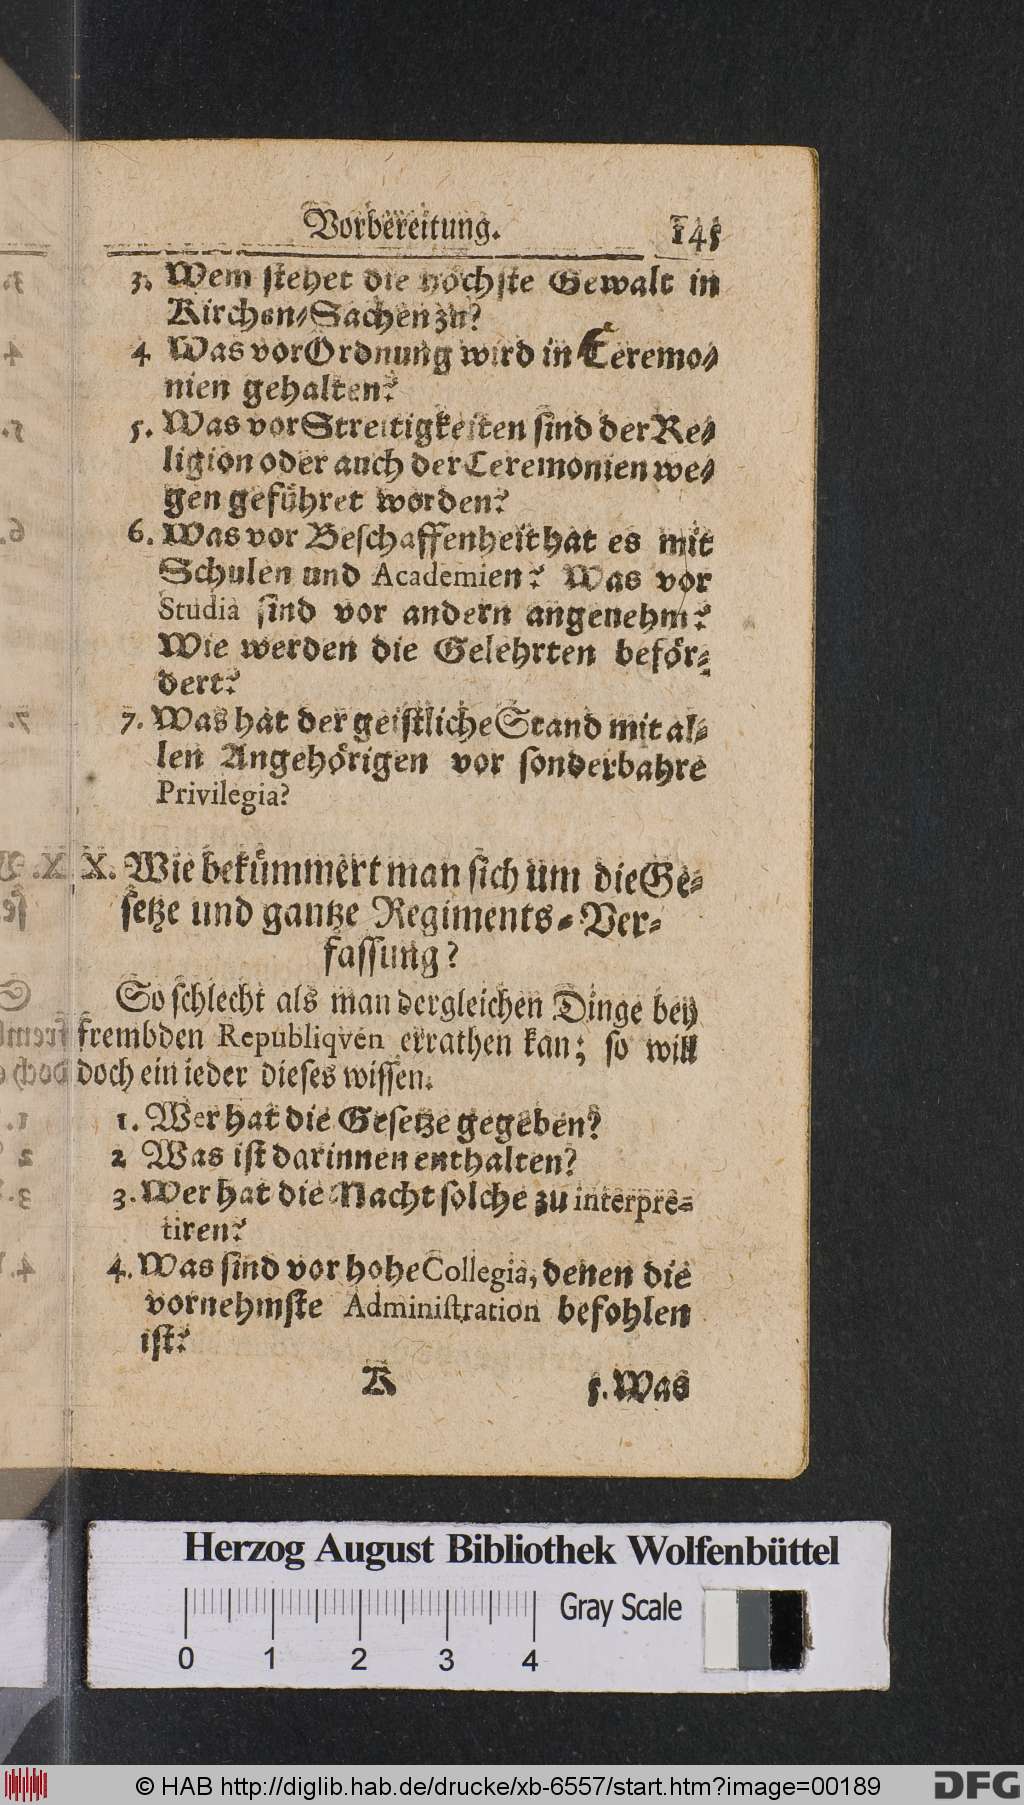 Vorbereitung. 145
3. Wem stehet die höchste Gewalt in
Kirchen-Sachen zu?
4 Was vor Ordnung wird in Ceremo-
nien gehalten?
5. Was vor Streitigkeiten sind der Re-
ligion oder auch der Ceremonien we-
gen geführet worden?
6. Was vor Beschaffenheit hat es mit
Schulen und Academien? Was vor
Studia sind vor andern angenehm?
Wie werden die Gelehrten beför-
dert?
7. Was hat der geistliche Stand mit al-
len Angehörigen vor sonderbahre
Privilegia?
X. Wie bekümmert man sich um die Ge-
setze und gantze Regiments-Ver-
fassung?
So schlecht als man dergleichen Dinge bey
frembden Republiqven errathen kan; so will
doch ein ieder dieses wissen.
1. Wer hat die Gesetze gegeben?
2 Was ist darinnen enthalten?
3. Wer hat die Macht solche zu interpre-
tiren?
4. Was sind vor hohe Collegia, denen die
vornehmste Administration befohlen
ist?
K 5. Was
Herzog August Bibliothek Wolfenbüttel
Gray Scale
0 1 2 3 4
© HAB http://diglib.hab.de/drucke/xb-6557/start.htm?image=00189
DFG